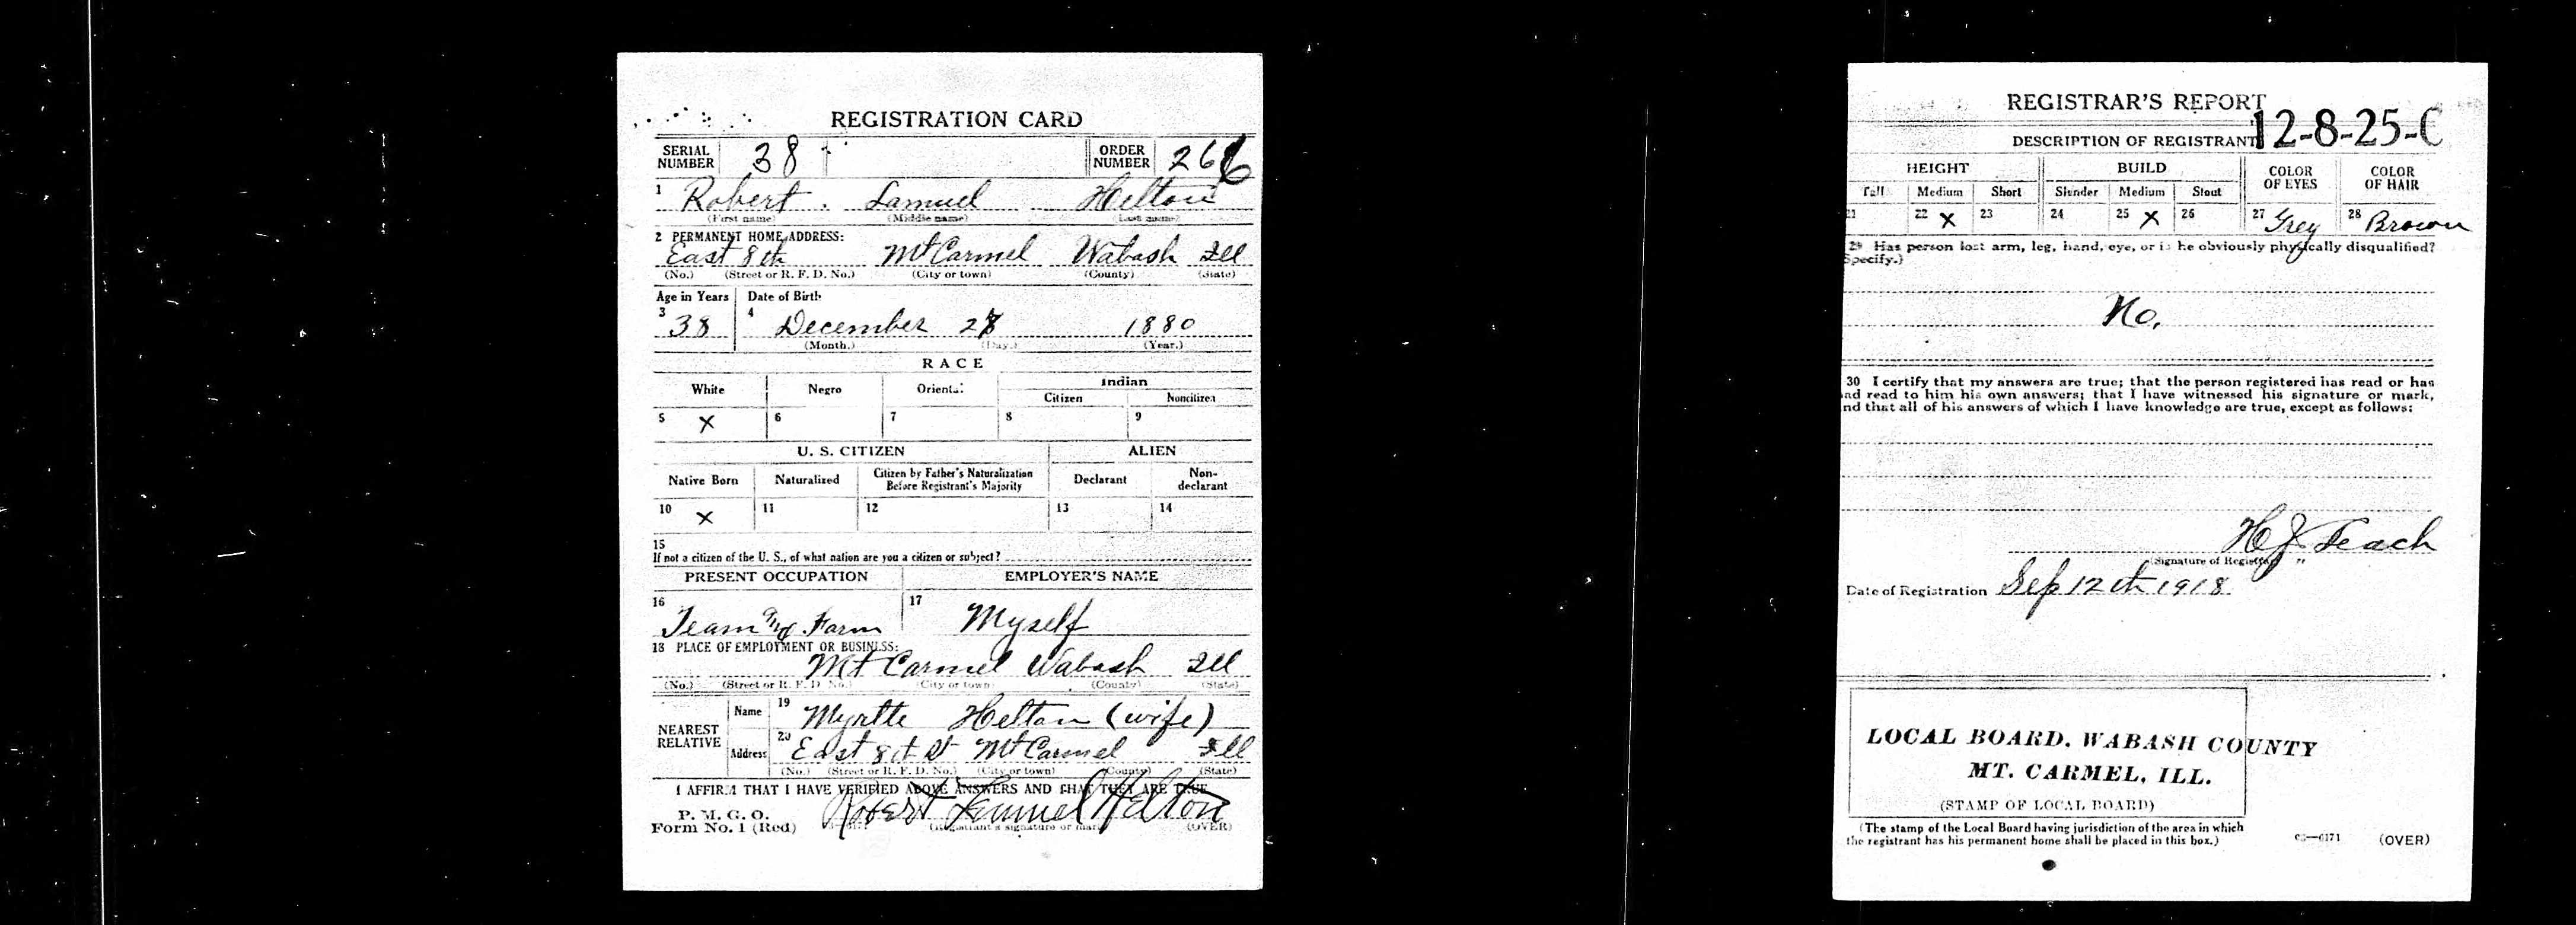 REGISTRATION CARD
SERIAL NUMBER 38 ORDER NUMBER 266
1 Robert Lamuel Helton
(First name) (Middle name) (Last name)
2 PERMANENT HOME ADDRESS:
East 8th Mt Carmel Wabash Ill
(No.) (Street or R. F. D. No.) (City or town) (County) (State)
Age in Years Date of Birth
3 38 4 December 28 1880
(Month.) (Day.) (Year.)
RACE
White Negro Oriental Indian
Citizen Noncitizen
5 X 6 7 8 9
U. S. CITIZEN ALIEN
Native Born Naturalized Citizen by Father's Naturalization Before Registrant's Majority Declarant Non-declarant
10 X 11 12 13 14
15
If not a citizen of the U. S., of what nation are you a citizen or subject?
PRESENT OCCUPATION EMPLOYER'S NAME
16 Team Farm 17 Myself
18 PLACE OF EMPLOYMENT OR BUSINESS:
Mt Carmel Wabash Ill
(No.) (Street or R. F. D. No.) (City or town) (County) (State)
NEAREST RELATIVE
Name 19 Myrtle Helton (wife)
Address 20 East 8th St Mt Carmel Ill
(No.) (Street or R. F. D. No.) (City or town) (County) (State)
I AFFIRM THAT I HAVE VERIFIED ABOVE ANSWERS AND THAT THEY ARE TRUE
P. M. G. O.
Form No. 1 (Red) Robert Lemuel Helton
(Registrant's signature or mark) (OVER)
REGISTRAR'S REPORT
12-8-25-C
DESCRIPTION OF REGISTRANT
HEIGHT BUILD COLOR OF EYES COLOR OF HAIR
Tall Medium Short Slender Medium Stout
21 22 X 23 24 25 X 26 27 Grey 28 Brown
29 Has person lost arm, leg, hand, eye, or is he obviously physically disqualified?
Specify.)
No.
30 I certify that my answers are true; that the person registered has read or has
ad read to him his own answers; that I have witnessed his signature or mark,
nd that all of his answers of which I have knowledge are true, except as follows:
H J Teach
(Signature of Registrar)
Date of Registration Sep 12th 1918
LOCAL BOARD, WABASH COUNTY
MT. CARMEL, ILL.
(STAMP OF LOCAL BOARD)
(The stamp of the Local Board having jurisdiction of the area in which
the registrant has his permanent home shall be placed in this box.)
03—6171 (OVER)